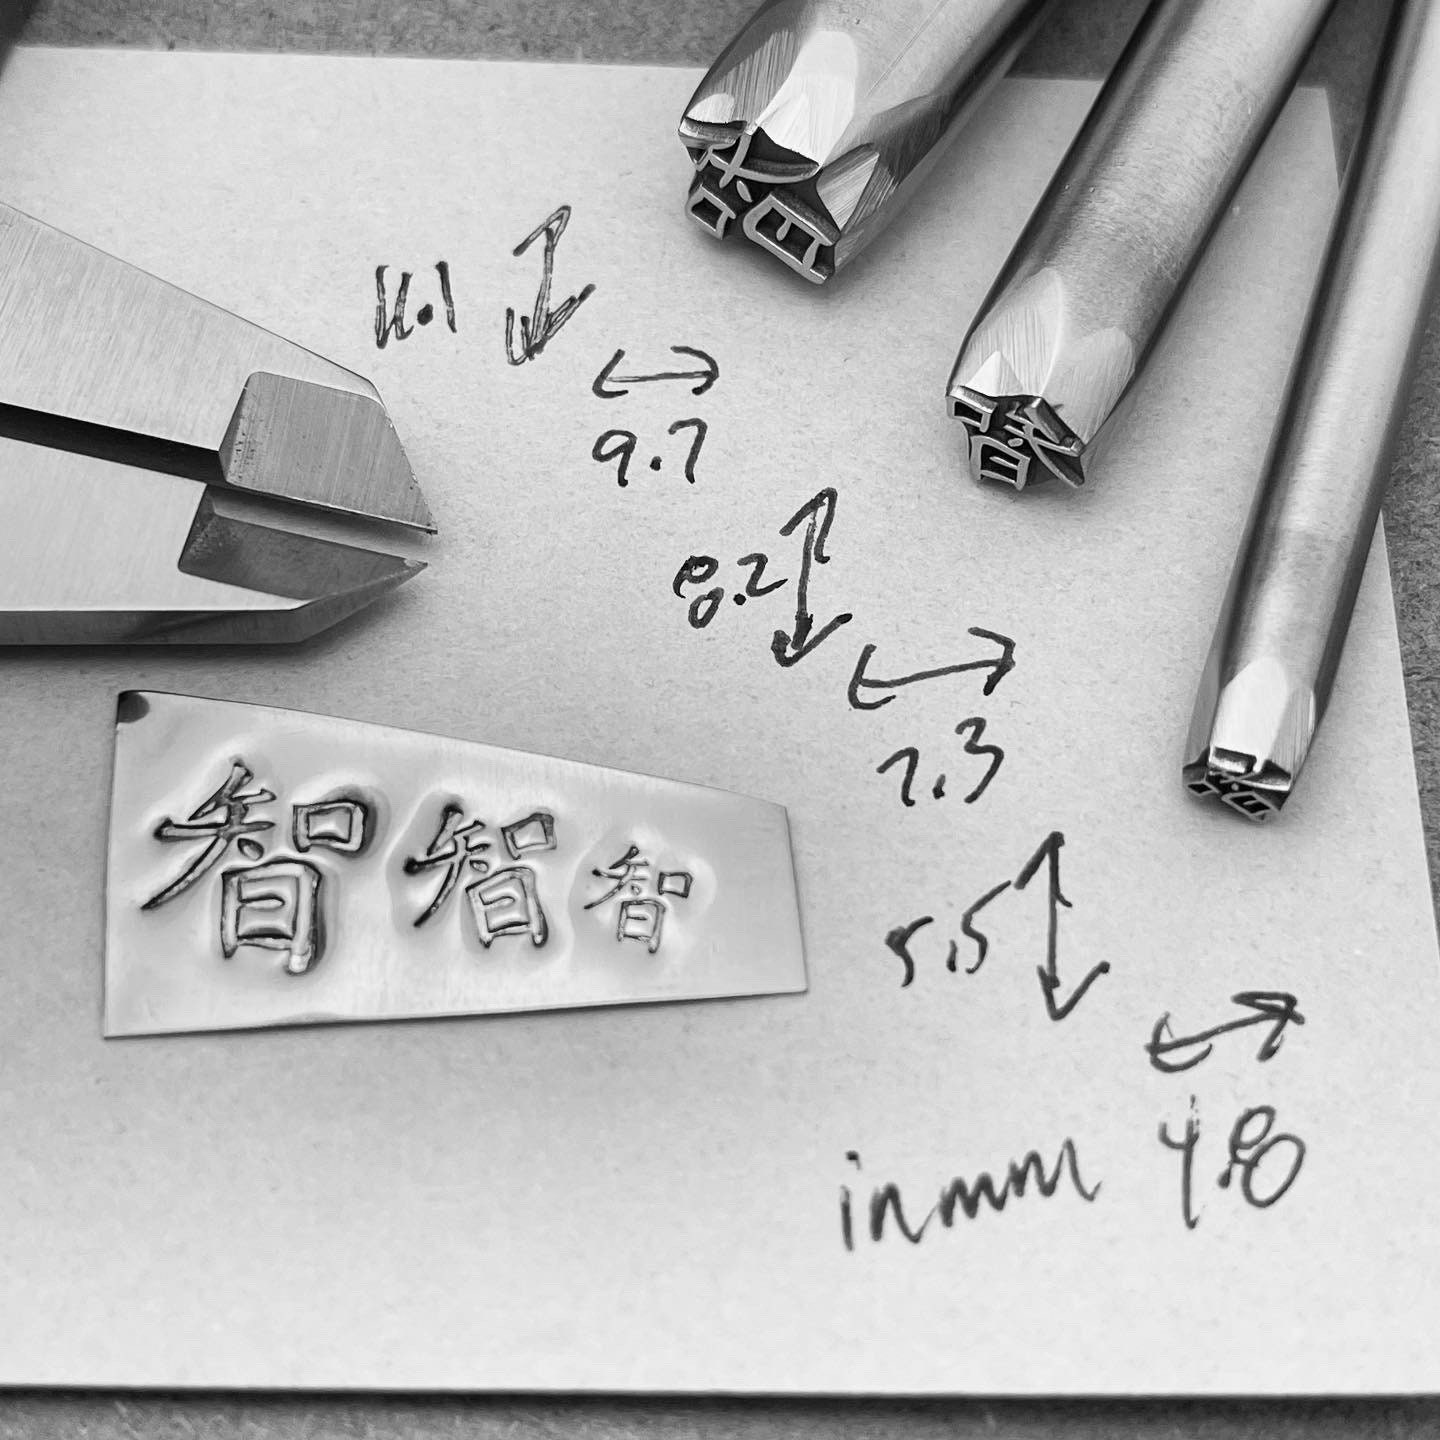 11.1
9.7
8.2
7.3
智智智
5.5
in mm 4.8